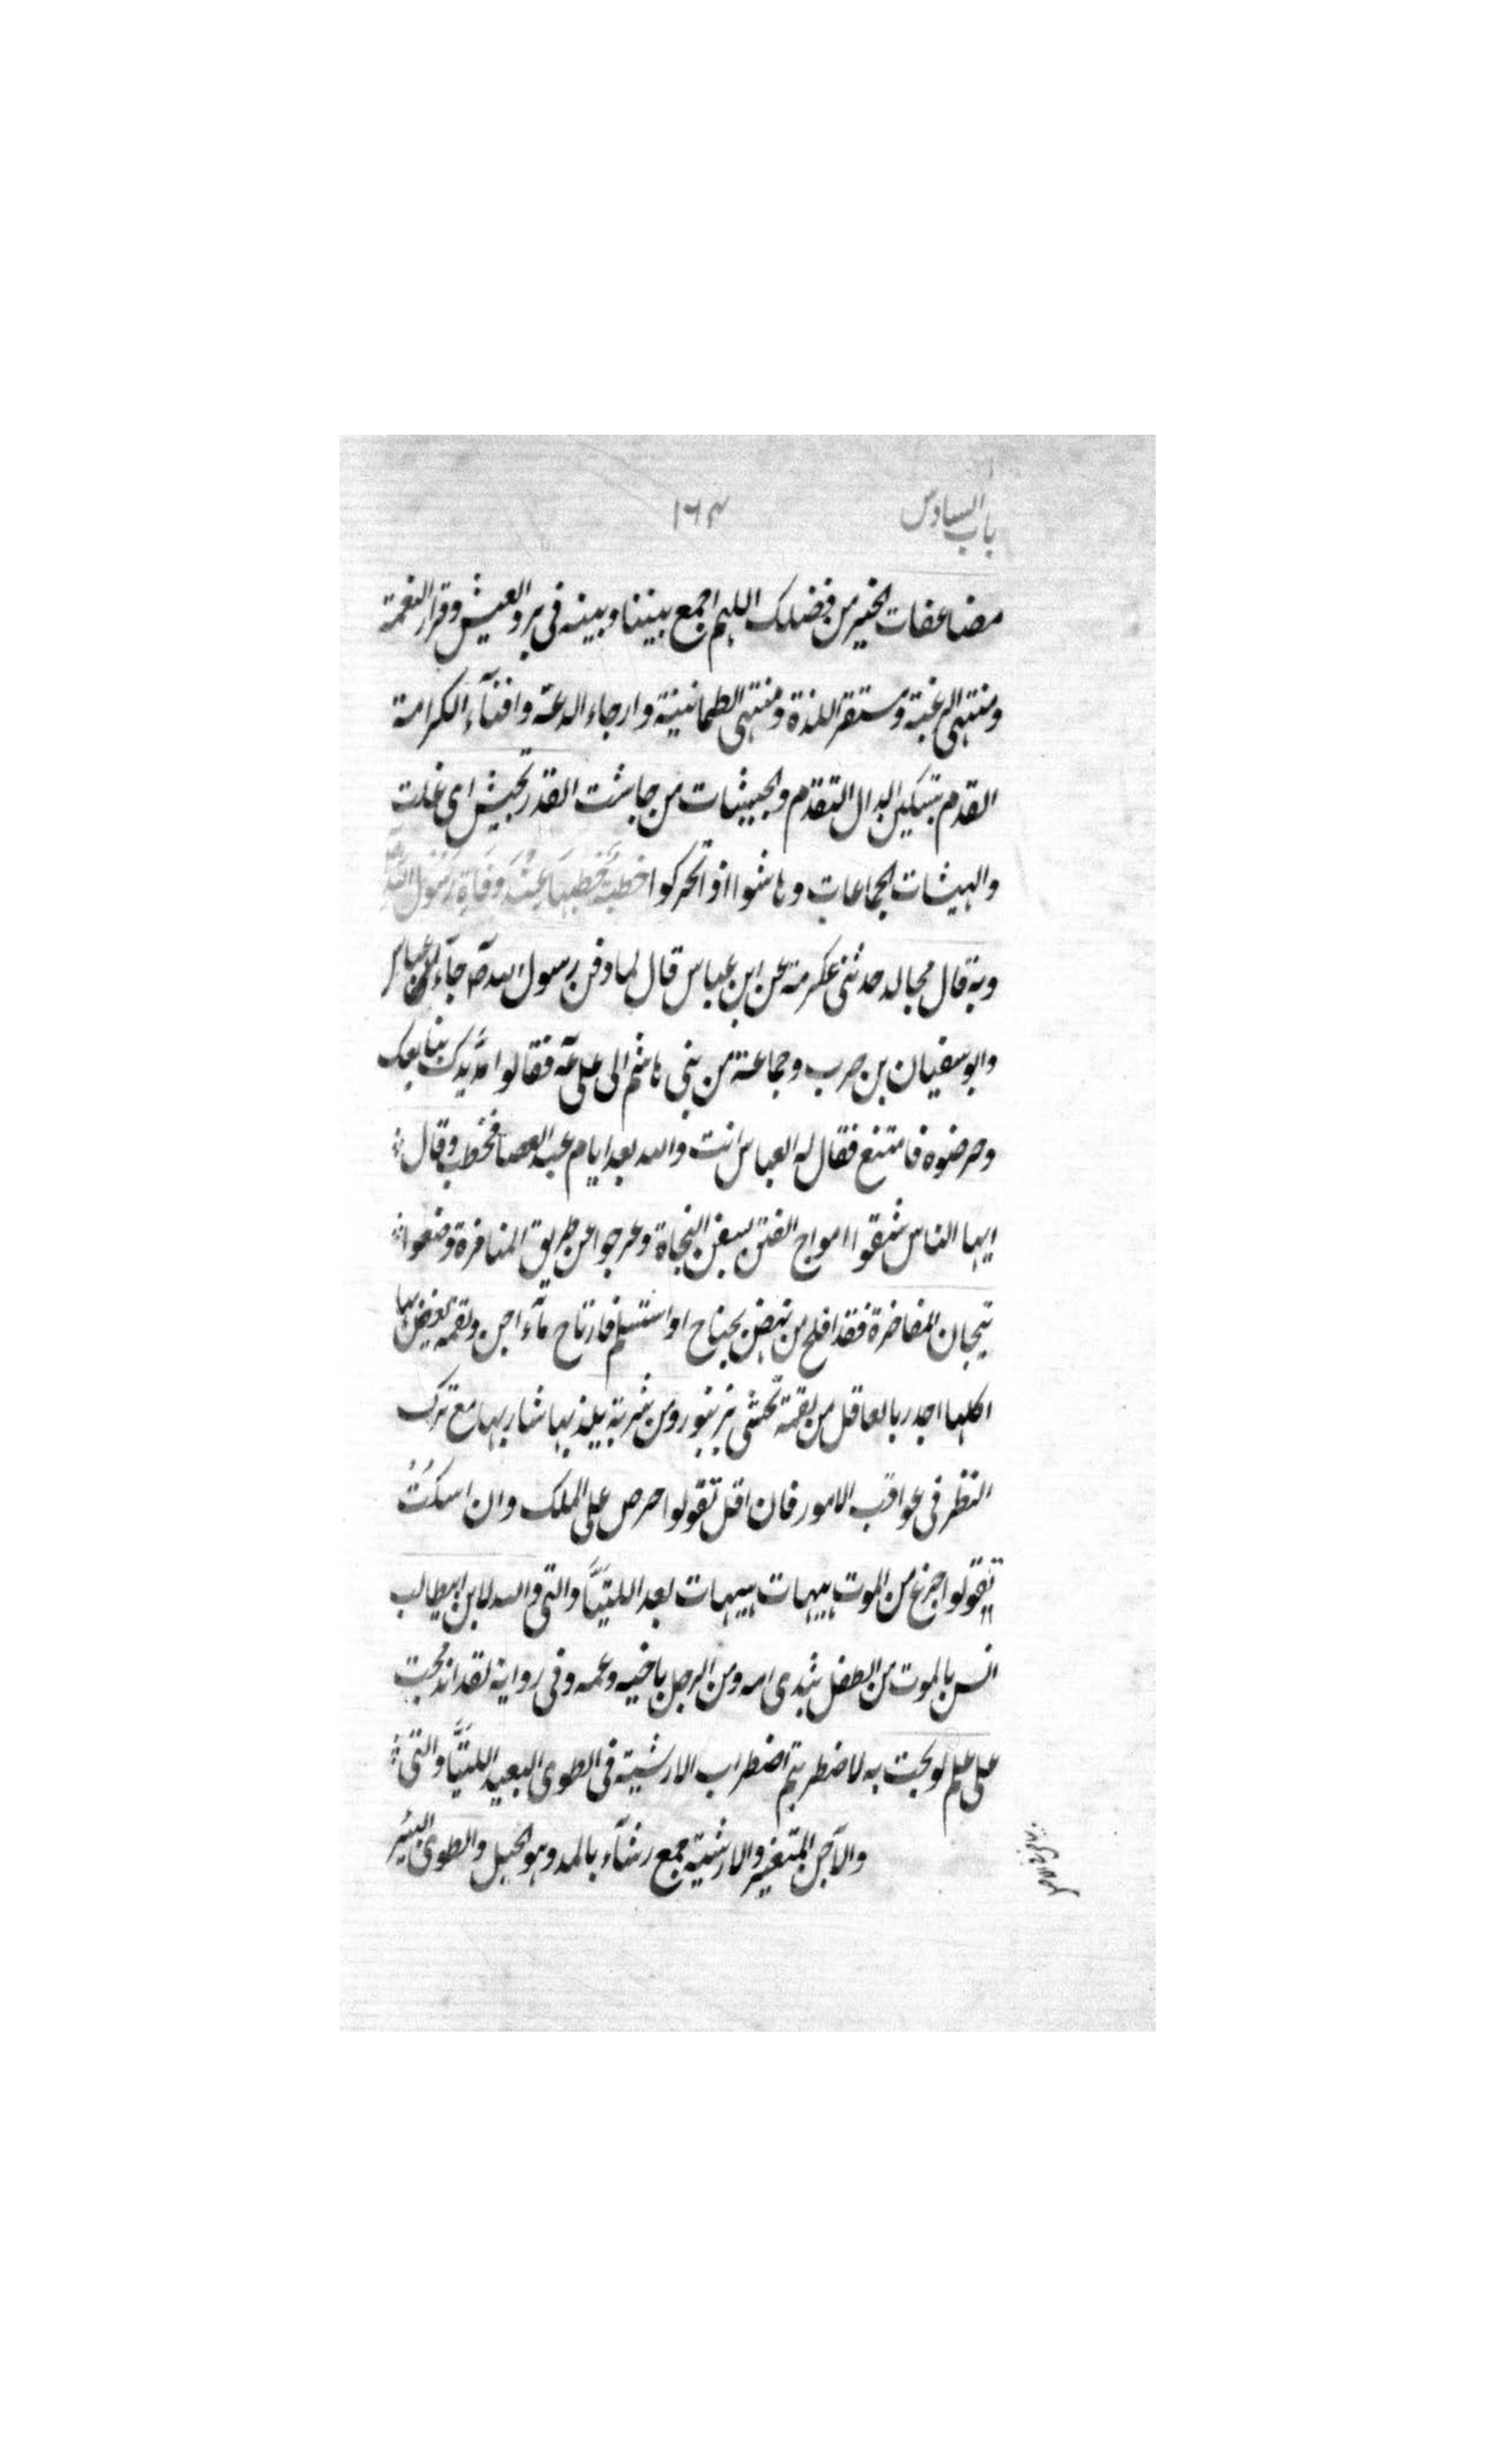 باب السادس
١٦٣
مضاعفات الخير من فضلك اللهم اجمع بيننا وبينه في برد العيش وقرار النعمة
ومنتهى الرغبة ومستقر اللذة ومنتهى الطمانينة وارجاء الدعة وافناء الكرامة
القدم بتسكين الدال التقدم والجيشات من جاشت القدر تجيش اى غلت
والهيشات الجماعات وهاشوا اذا تحركوا خطبة خطبها بعد وفاة رسول الله
وبه قال مجالد حدثنى عكرمة عن ابن عباس قال لما دفن رسول الله صۤ جاۤء العباس
وابو سفيان بن حرب وجماعة من بنى هاشم الى على عۤ فقالوا مد يدك نبايعك
وحرضوه فامتنع فقال له العباس انت والله بعد ايام عبد العصا فخطب وقال
ايها الناس شقوا امواج الفتن بسفن النجاة وعرجوا عن طريق المنافرة وضعوا
تيجان المفاخرة فقد افلح من نهض بجناح او استسلم فارتاح ماۤء اجن ولقمة يغص بها
اكلها اجدر بالعاقل من لقمة تحشى بزنبور ومن شربة يلذ بها شاربها مع ترك
النظر فى عواقب الامور فان اقل تقولوا حرص على الملك وان اسكت
تقولوا جزع من الموت هيهات هيهات بعد اللتيا والتى والله لابن ابيطالب
انس بالموت من الطفل بثدى امه ومن الرجل باخيه وعمه وفى رواية لقد اندمجت
على علم لو بحت به لاضطربتم اضطراب الارشية فى الطوى البعيد اللتيا والتى
والآجن المتغير والارشية جمع رشاۤء بالمد وهو الحبل والطوى البئر